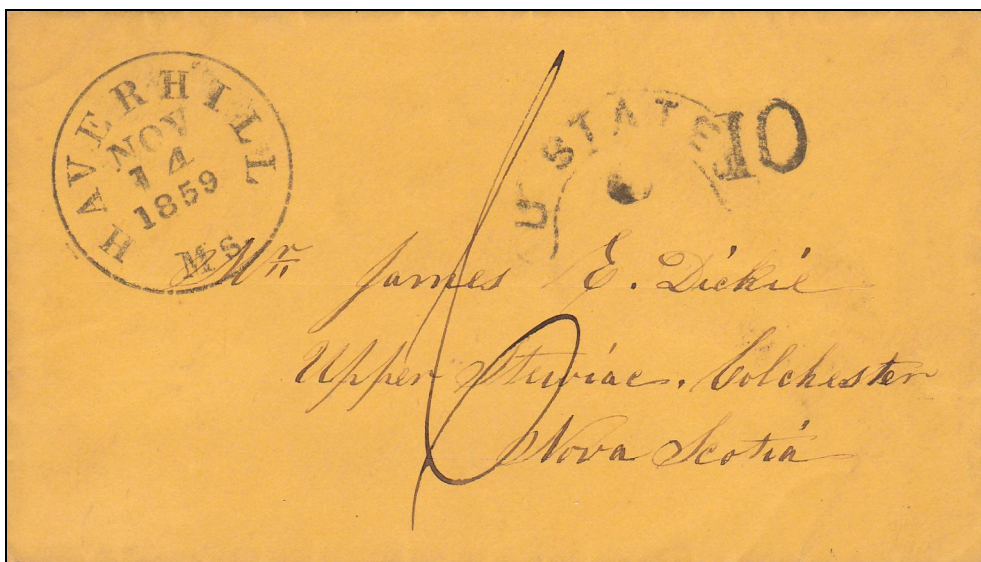 HAVERHILL
NOV
14
1859
MS
U STATES
10
6
Mr James E. Dickie
Upper Stewiac. Colchester
Nova Scotia